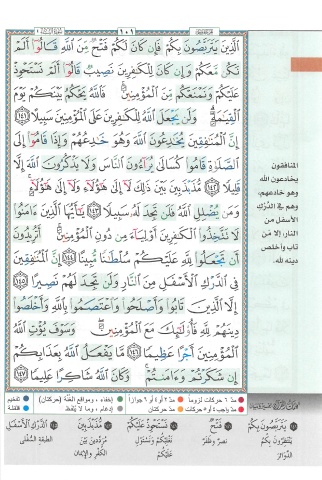 ١٠١
ٱلَّذِينَ يَتَرَبَّصُونَ بِكُمْ فَإِن كَانَ لَكُمْ فَتْحٌ مِّنَ ٱللَّهِ قَالُوٓا۟ أَلَمْ
نَكُن مَّعَكُمْ وَإِن كَانَ لِلْكَٰفِرِينَ نَصِيبٌ قَالُوٓا۟ أَلَمْ نَسْتَحْوِذْ
عَلَيْكُمْ وَنَمْنَعْكُم مِّنَ ٱلْمُؤْمِنِينَ ۚ فَٱللَّهُ يَحْكُمُ بَيْنَكُمْ يَوْمَ
ٱلْقِيَٰمَةِ ۗ وَلَن يَجْعَلَ ٱللَّهُ لِلْكَٰفِرِينَ عَلَى ٱلْمُؤْمِنِينَ سَبِيلًا ١٤١
إِنَّ ٱلْمُنَٰفِقِينَ يُخَٰدِعُونَ ٱللَّهَ وَهُوَ خَٰدِعُهُمْ وَإِذَا قَامُوٓا۟ إِلَى
ٱلصَّلَوٰةِ قَامُوا۟ كُسَالَىٰ يُرَآءُونَ ٱلنَّاسَ وَلَا يَذْكُرُونَ ٱللَّهَ إِلَّا
قَلِيلًا ١٤٢ مُّذَبْذَبِينَ بَيْنَ ذَٰلِكَ لَآ إِلَىٰ هَٰٓؤُلَآءِ وَلَآ إِلَىٰ هَٰٓؤُلَآءِ ۚ
وَمَن يُضْلِلِ ٱللَّهُ فَلَن تَجِدَ لَهُۥ سَبِيلًا ١٤٣ يَٰٓأَيُّهَا ٱلَّذِينَ ءَامَنُوا۟
لَا تَتَّخِذُوا۟ ٱلْكَٰفِرِينَ أَوْلِيَآءَ مِن دُونِ ٱلْمُؤْمِنِينَ ۚ أَتُرِيدُونَ
أَن تَجْعَلُوا۟ لِلَّهِ عَلَيْكُمْ سُلْطَٰنًا مُّبِينًا ١٤٤ إِنَّ ٱلْمُنَٰفِقِينَ
فِى ٱلدَّرْكِ ٱلْأَسْفَلِ مِنَ ٱلنَّارِ وَلَن تَجِدَ لَهُمْ نَصِيرًا ١٤٥
إِلَّا ٱلَّذِينَ تَابُوا۟ وَأَصْلَحُوا۟ وَٱعْتَصَمُوا۟ بِٱللَّهِ وَأَخْلَصُوا۟
دِينَهُمْ لِلَّهِ فَأُو۟لَٰٓئِكَ مَعَ ٱلْمُؤْمِنِينَ ۖ وَسَوْفَ يُؤْتِ ٱللَّهُ
ٱلْمُؤْمِنِينَ أَجْرًا عَظِيمًا ١٤٦ مَّا يَفْعَلُ ٱللَّهُ بِعَذَابِكُمْ
إِن شَكَرْتُمْ وَءَامَنتُمْ ۚ وَكَانَ ٱللَّهُ شَاكِرًا عَلِيمًا ١٤٧
المنافقون
يخادعون الله
وهو خادعهم،
وهم في الدَّرْك
الأسفل من
النار، إلا مَن
تاب وأخلص
دينه لله.
مد ٦ حركات لزوماً مد ٢ أو ٤ أو ٦ جوازاً إخفاء، ومواقع الغنة (حركتان) تفخيم
مد واجب ٤ أو ٥ حركات مد حركتان إدغام، وما لا يلفظ قلقلة
يَتَرَبَّصُونَ بِكُمْ
يَنْتَظِرُونَ بِكُمُ
الدَّوَائِرَ
فَتْحٌ
نَصْرٌ وَظَفَرٌ
نَسْتَحْوِذْ عَلَيْكُمْ
مُّذَبْذَبِينَ
مُرَدَّدِينَ بَيْنَ
الكُفْرِ وَالإِيمَانِ
ٱلدَّرْكِ ٱلْأَسْفَلِ
الطَّبَقَةِ السُّفْلَى